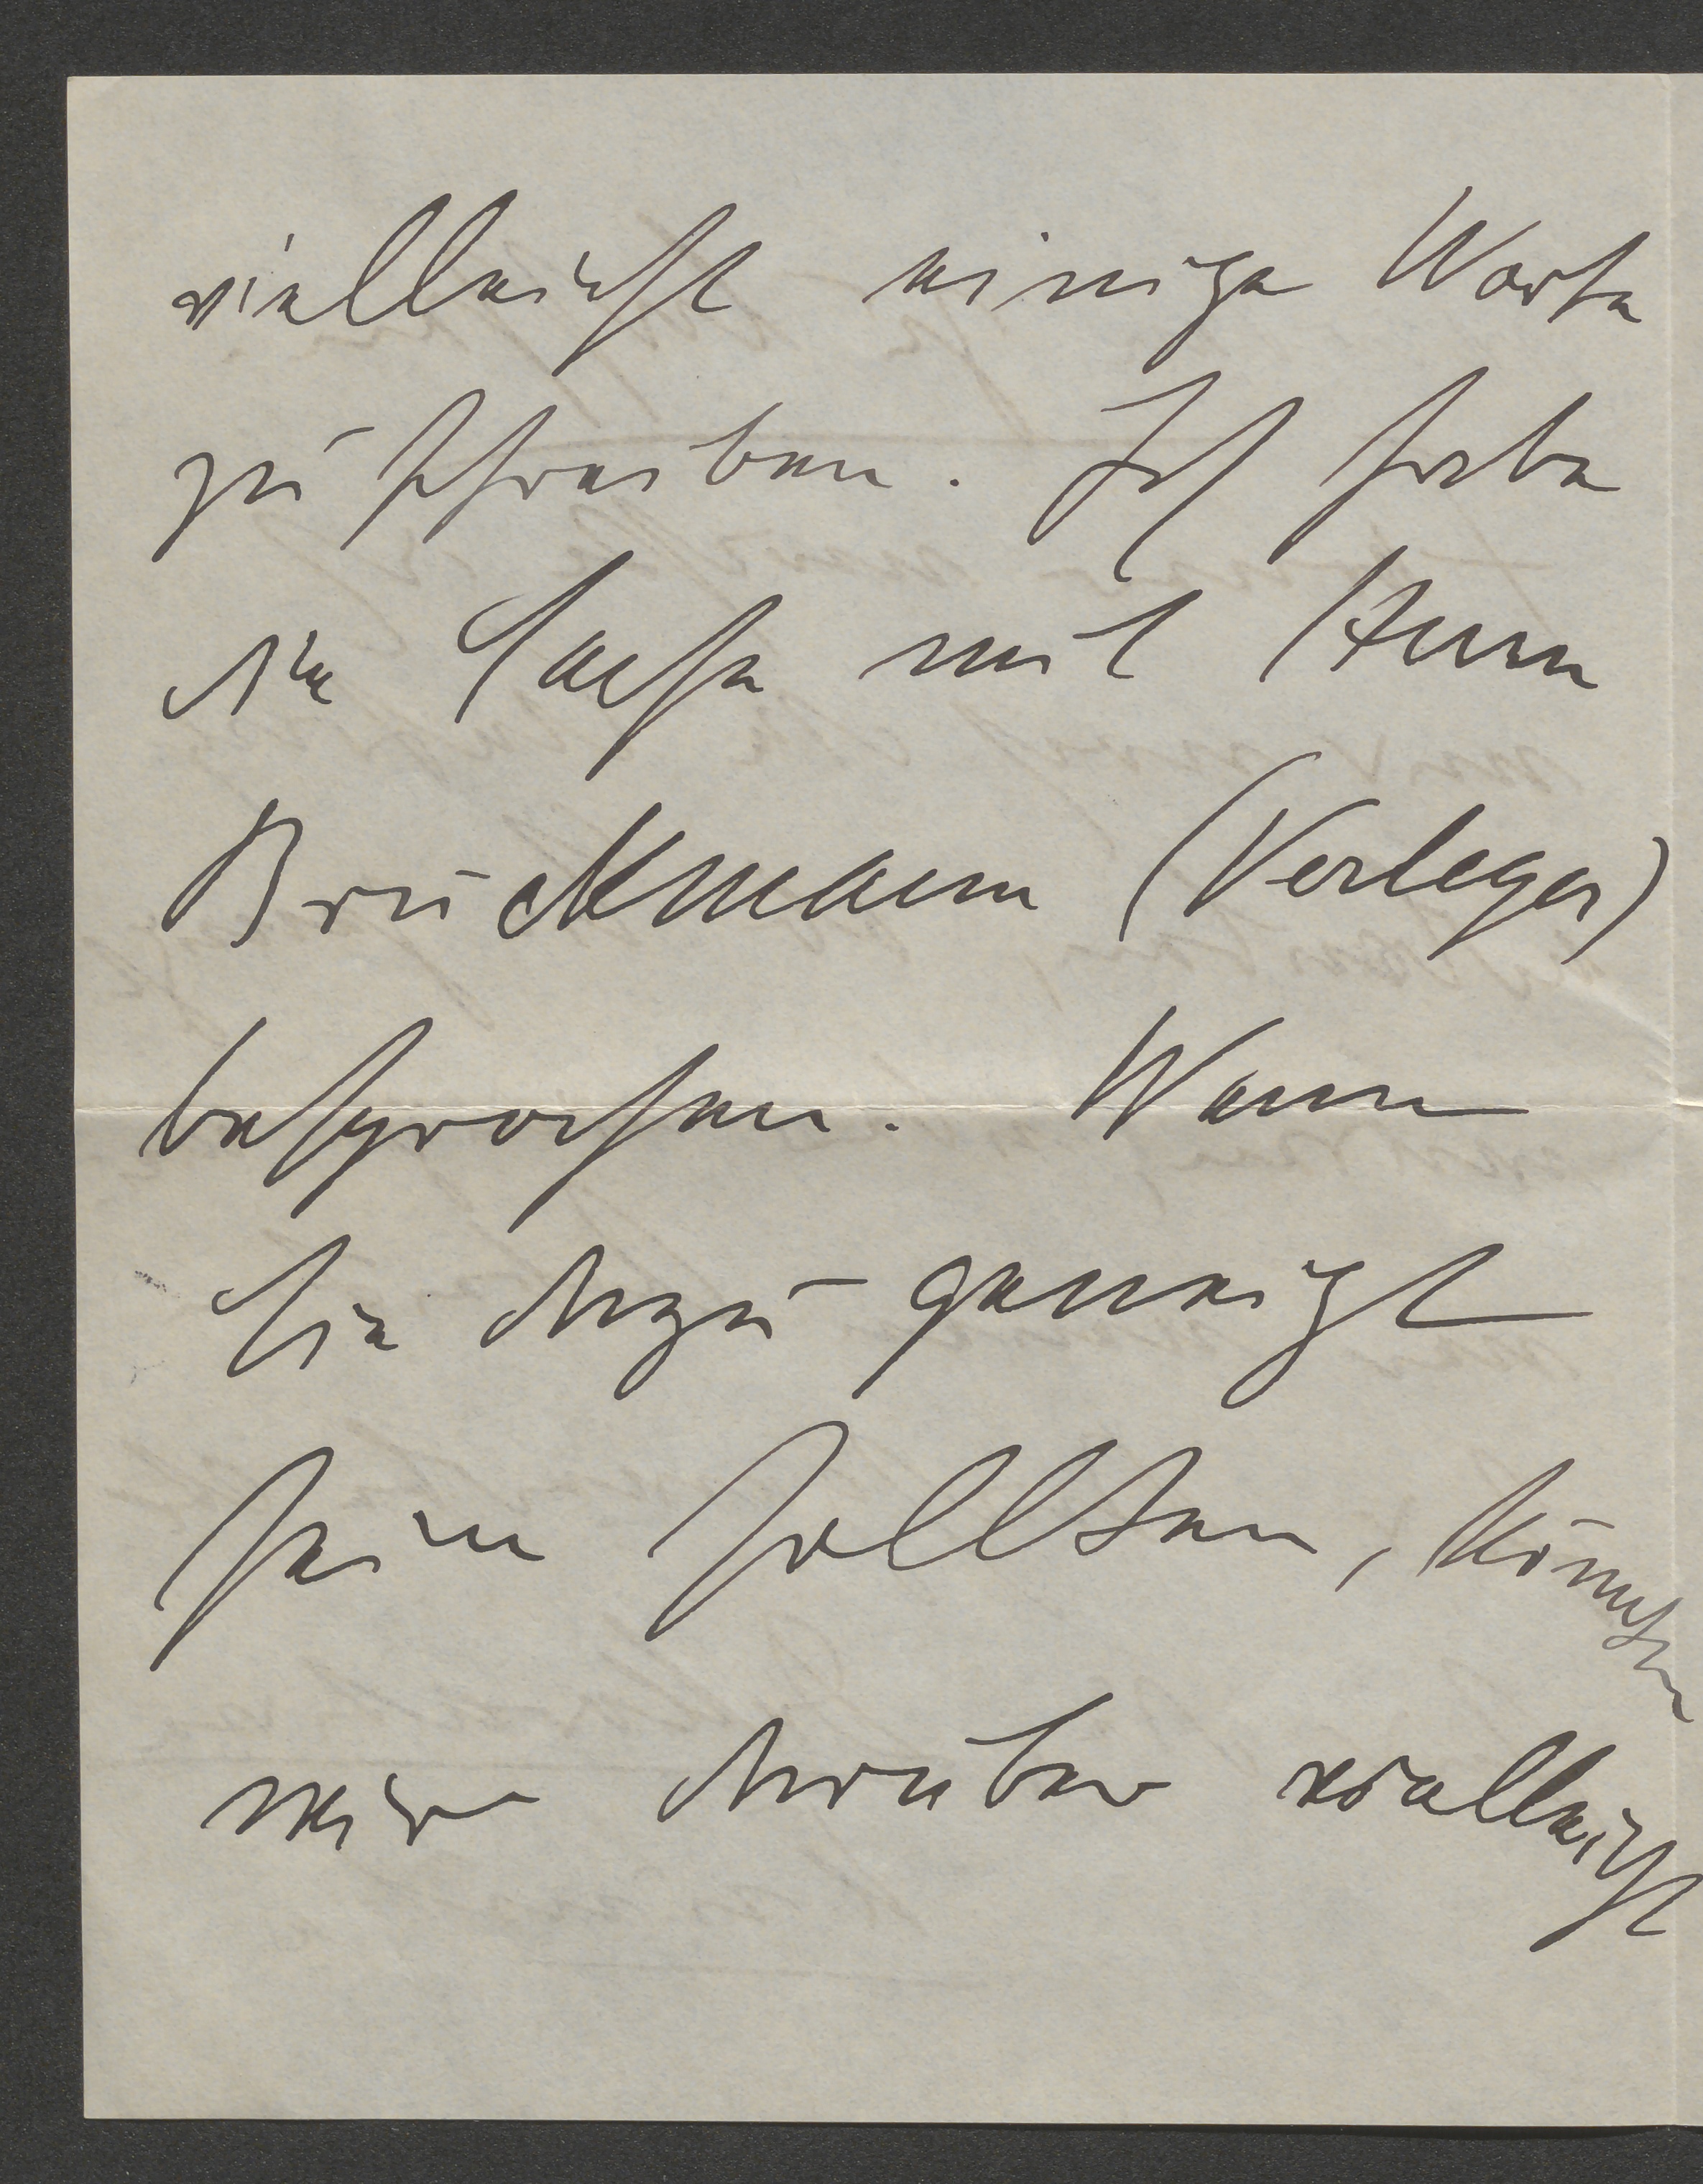 vielleicht einige Worte
zu schreiben. Ich habe
die Sache mit Herrn
Bruckmann (Verleger)
besprochen. Wenn
Sie dazu geneigt
sein sollten, könnten
wir darüber vielleicht